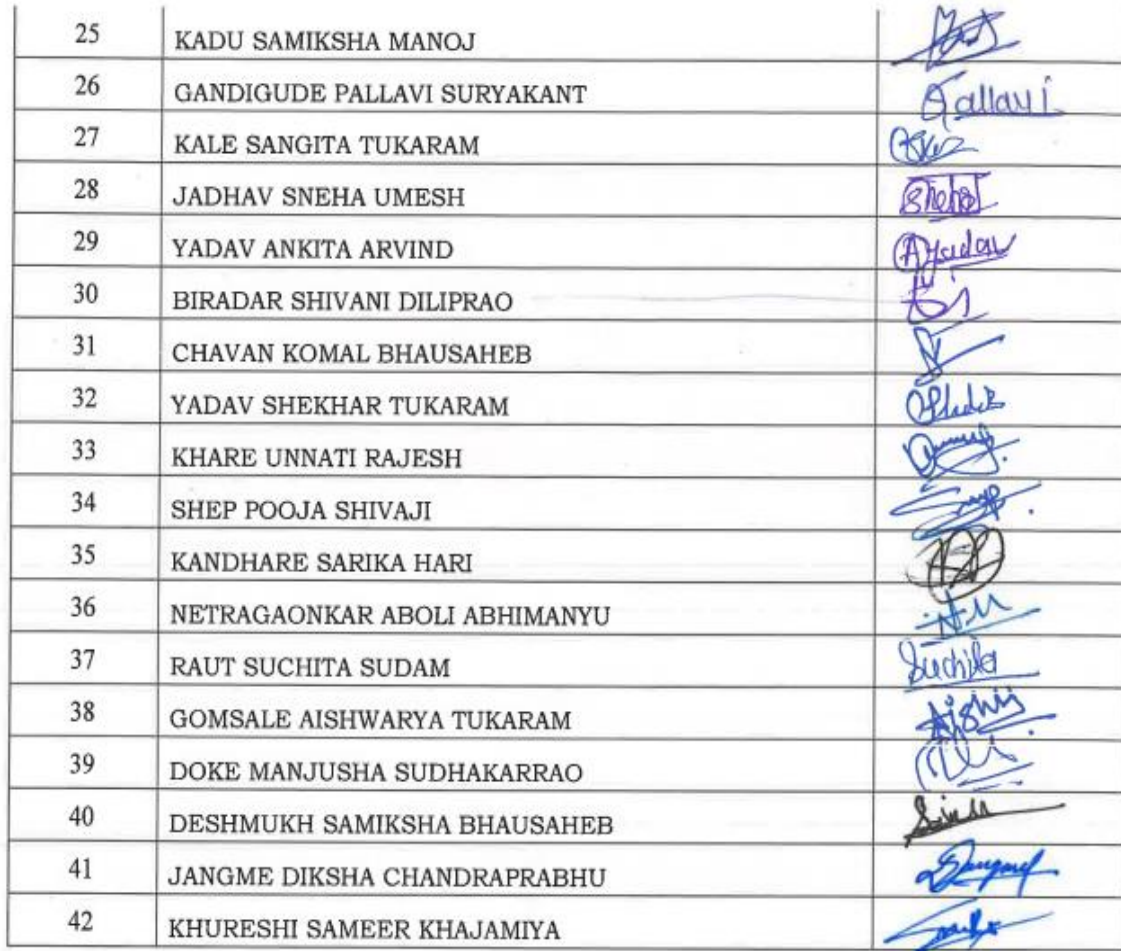 25 KADU SAMIKSHA MANOJ
26 GANDIGUDE PALLAVI SURYAKANT Pallavi
27 KALE SANGITA TUKARAM
28 JADHAV SNEHA UMESH Sneha
29 YADAV ANKITA ARVIND AYadav
30 BIRADAR SHIVANI DILIPRAO
31 CHAVAN KOMAL BHAUSAHEB
32 YADAV SHEKHAR TUKARAM
33 KHARE UNNATI RAJESH
34 SHEP POOJA SHIVAJI
35 KANDHARE SARIKA HARI
36 NETRAGAONKAR ABOLI ABHIMANYU
37 RAUT SUCHITA SUDAM Suchita
38 GOMSALE AISHWARYA TUKARAM
39 DOKE MANJUSHA SUDHAKARRAO
40 DESHMUKH SAMIKSHA BHAUSAHEB
41 JANGME DIKSHA CHANDRAPRABHU
42 KHURESHI SAMEER KHAJAMIYA